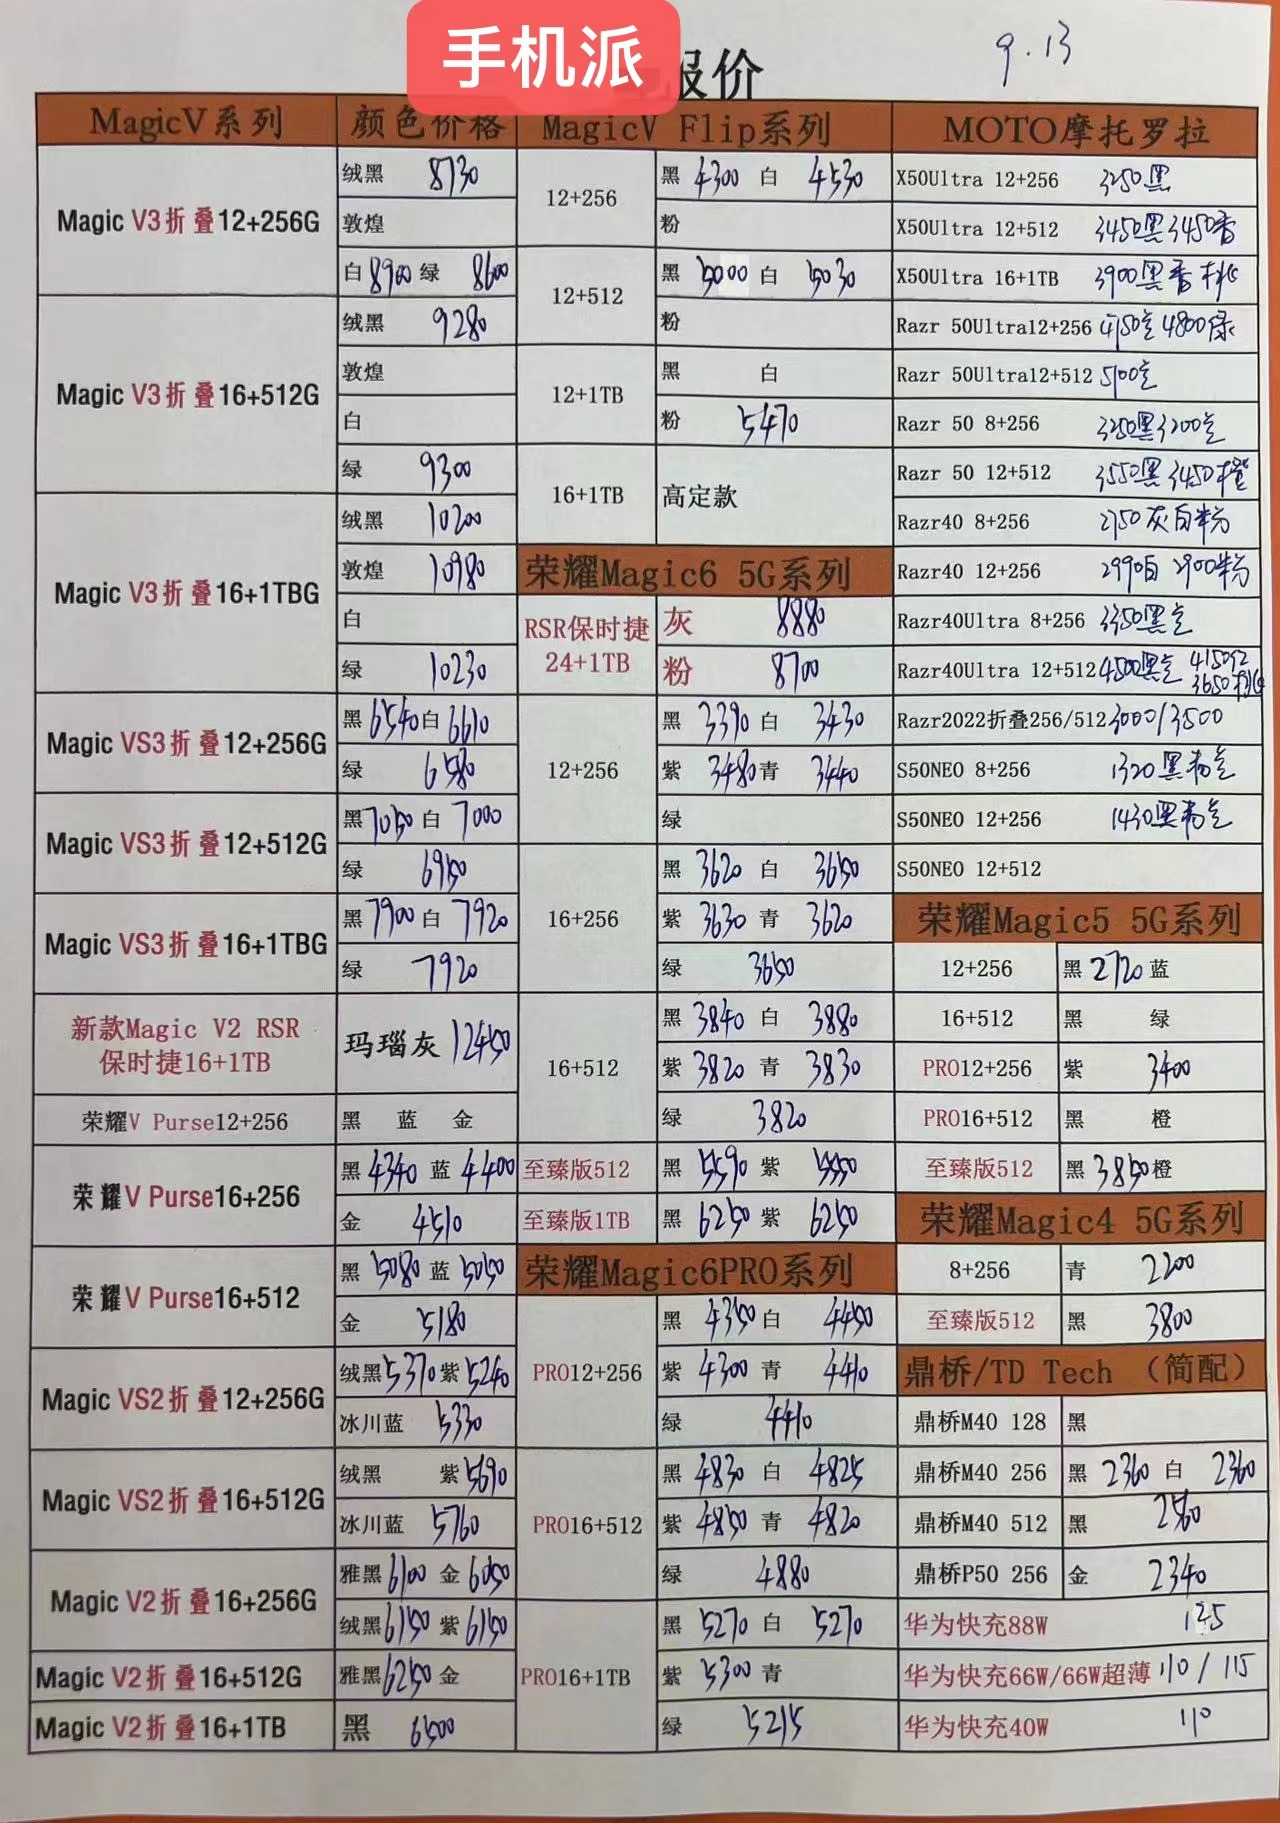 手机派
报价
9.13
MagicV系列 颜色价格
Magic V3折叠12+256G
绒黑 8730
敦煌
白 8900 绿 8600
Magic V3折叠16+512G
绒黑 9280
敦煌
白
绿 9300
Magic V3折叠16+1TBG
绒黑 10200
敦煌 10980
白
绿 10230
Magic VS3折叠12+256G
黑 6540 白 6610
绿 6580
Magic VS3折叠12+512G
黑 7050 白 7000
绿 6950
Magic VS3折叠16+1TBG
黑 7900 白 7920
绿 7920
新款Magic V2 RSR
保时捷16+1TB
玛瑙灰 12450
荣耀V Purse12+256
黑 蓝 金
荣耀V Purse16+256
黑 4340 蓝 4400
金 4510
荣耀V Purse16+512
黑 5080 蓝 5050
金 5180
Magic VS2折叠12+256G
绒黑 5370 紫 5240
冰川蓝 5330
Magic VS2折叠16+512G
绒黑 紫 5690
冰川蓝 5760
Magic V2折叠16+256G
雅黑 6100 金 6050
绒黑 6150 紫 6150
Magic V2折叠16+512G
雅黑 6250 金
Magic V2折叠16+1TB
黑 6500
MagicV Flip系列
12+256
黑 4300 白 4530
粉
12+512
黑 5000 白 5030
粉
12+1TB
黑 白
粉 5470
16+1TB
高定款
荣耀Magic6 5G系列
RSR保时捷
24+1TB
灰 8880
粉 8700
12+256
黑 3390 白 3430
紫 3480 青 3440
绿
16+256
黑 3620 白 3650
紫 3630 青 3620
绿 3650
16+512
黑 3840 白 3880
紫 3820 青 3830
绿 3820
至臻版512 黑 5590 紫 5550
至臻版1TB 黑 6250 紫 6250
荣耀Magic6PRO系列
PRO12+256
黑 4350 白 4450
紫 4300 青 4410
绿 4410
PRO16+512
黑 4830 白 4825
紫 4850 青 4820
绿 4880
PRO16+1TB
黑 5270 白 5270
紫 5300 青
绿 5215
MOTO摩托罗拉
X50Ultra 12+256 3250黑
X50Ultra 12+512 3450黑 3450杏
X50Ultra 16+1TB 3900黑杏桃
Razr 50Ultra12+256 4800绿
Razr 50Ultra12+512 5100
Razr 50 8+256 3250黑 3200
Razr 50 12+512 3550黑 3450橙
Razr40 8+256 2750灰白粉
Razr40 12+256 2990白 2900粉
Razr40Ultra 8+256 3350黑
Razr40Ultra 12+512 4500黑 4150红
3650桃
Razr2022折叠256/512 3000/3500
S50NEO 8+256 1320黑
S50NEO 12+256 1430黑
S50NEO 12+512
荣耀Magic5 5G系列
12+256 黑 2720 蓝
16+512 黑 绿
PRO12+256 紫 3400
PRO16+512 黑 橙
至臻版512 黑 3850 橙
荣耀Magic4 5G系列
8+256 青 2200
至臻版512 黑 3800
鼎桥/TD Tech （简配）
鼎桥M40 128 黑
鼎桥M40 256 黑 2360 白 2360
鼎桥M40 512 黑 2560
鼎桥P50 256 金 2340
华为快充88W 125
华为快充66W/66W超薄 110/115
华为快充40W 110